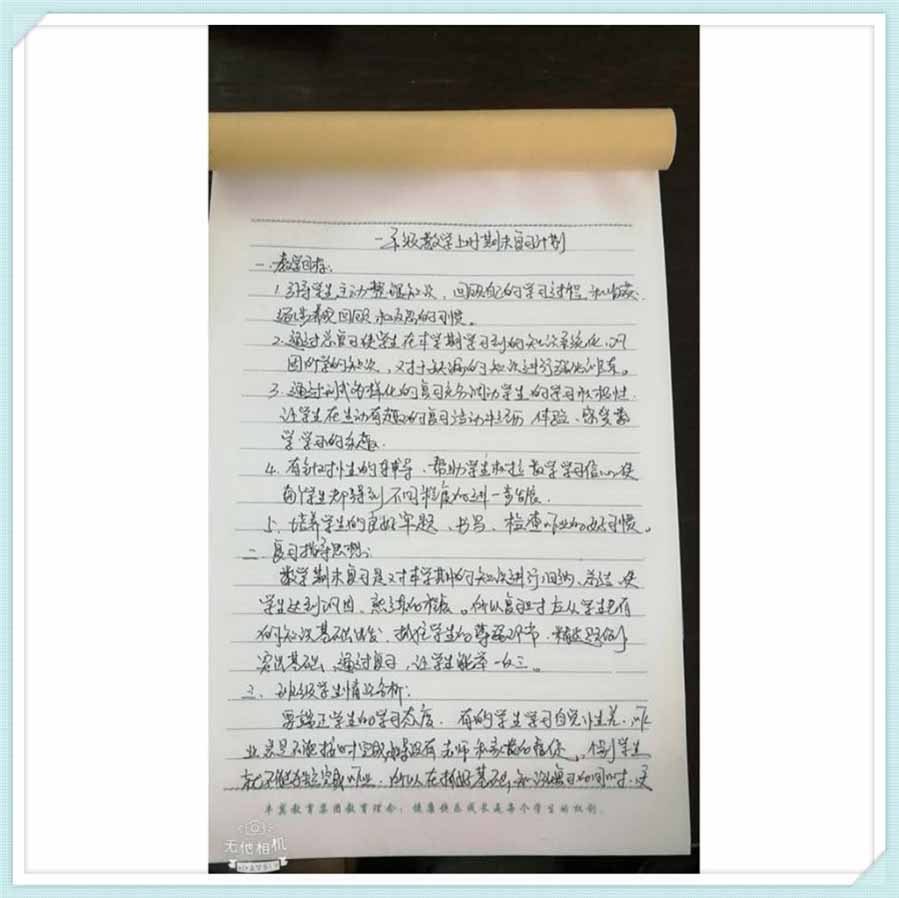 一年级数学上册期末复习计划
一、教学目标:
1.引导学生主动整理知识,回顾自己的学习过程和收获,
逐步养成回顾和反思的习惯。
2.通过总复习使学生在本学期学习到的知识系统化,巩
固所学的知识,对于缺漏的知识进行强化训练。
3.通过形式多样化的复习充分调动学生的学习积极性,
让学生在生动有趣的复习活动中经历、体验、感受数
学学习的乐趣。
4.有针对性的辅导,帮助学生树立数学学习信心,使
每个学生都得到不同程度的进一步发展。
5.培养学生的良好审题、书写、检查作业的好习惯。
二、复习指导思想:
数学期末复习是对本学期的知识进行归纳、总结,使
学生达到巩固、熟练的程度。所以复习时应从学生已有
的知识基础出发,抓住学生的薄弱环节,精选题例,
突出基础,通过复习,让学生能举一反三。
三、班级学生情况分析:
要端正学生的学习态度,有的学生学习自觉性差,作
业总是不能按时完成,没有老师和家长的督促,个别学生
就不能完成作业,所以在抓好基础知识复习的同时,更
丰冀教育集团教育理念:健康快乐成长是每个学生的权利。
无他相机